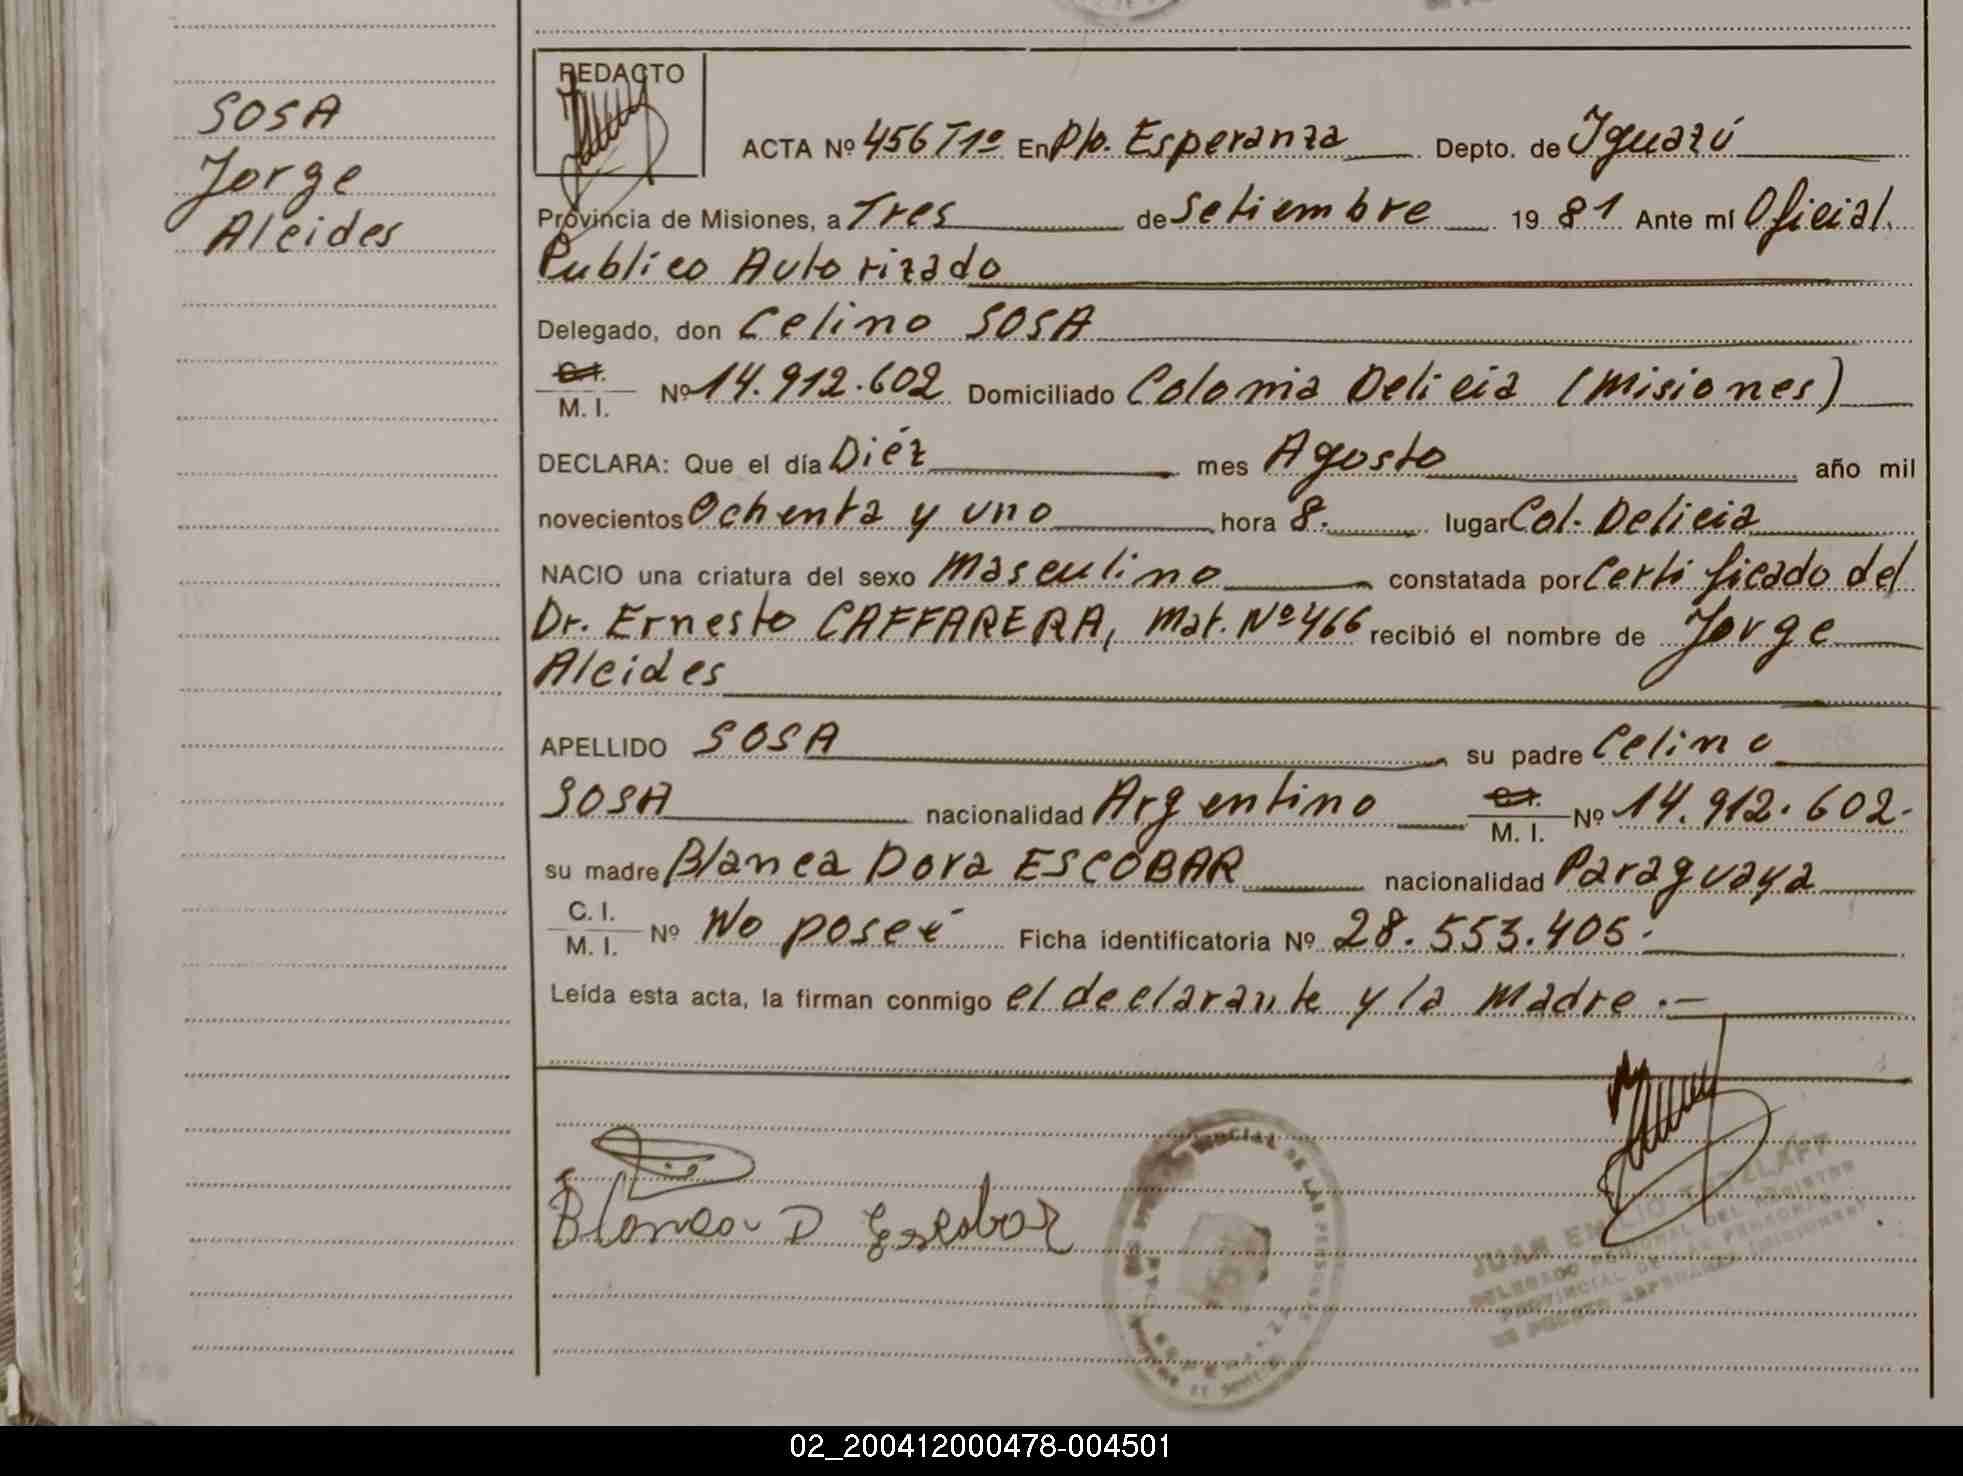 SOSA
Jorge
Alcides
REDACTO
ACTA Nº 456 T1º En Pto. Esperanza Depto. de Iguazú
Provincia de Misiones, a Tres de Setiembre 19 81 Ante mí Oficial.
Publico Autorizado
Delegado, don Celino SOSA
C. I.
M. I. Nº 14.912.602 Domiciliado Colonia Delicia (Misiones)
DECLARA: Que el día Diéz mes Agosto año mil
novecientos Ochenta y uno hora 8. lugar Col. Delicia
NACIO una criatura del sexo Masculino constatada por Certificado del
Dr. Ernesto CAFFARERA, Mat. Nº 466 recibió el nombre de Jorge
Alcides
APELLIDO SOSA su padre Celino
SOSA nacionalidad Argentino C. I. M. I. Nº 14.912.602.
su madre Blanca Dora ESCOBAR nacionalidad Paraguaya
C. I.
M. I. Nº No poseé Ficha identificatoria Nº 28.553.405.
Leída esta acta, la firman conmigo el declarante y la Madre.-
Blanca D Escobar
JUAN EMILIO TETZLAFF
DELEGADO REGIONAL DEL REGISTRO
PROVINCIAL DE LAS PERSONAS
DE PUERTO ESPERANZA (MISIONES)
02_200412000478-004501